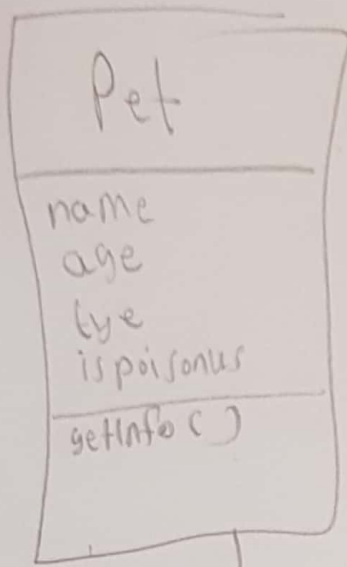 Pet
name
age
tye
ispoisonus
getInfo()